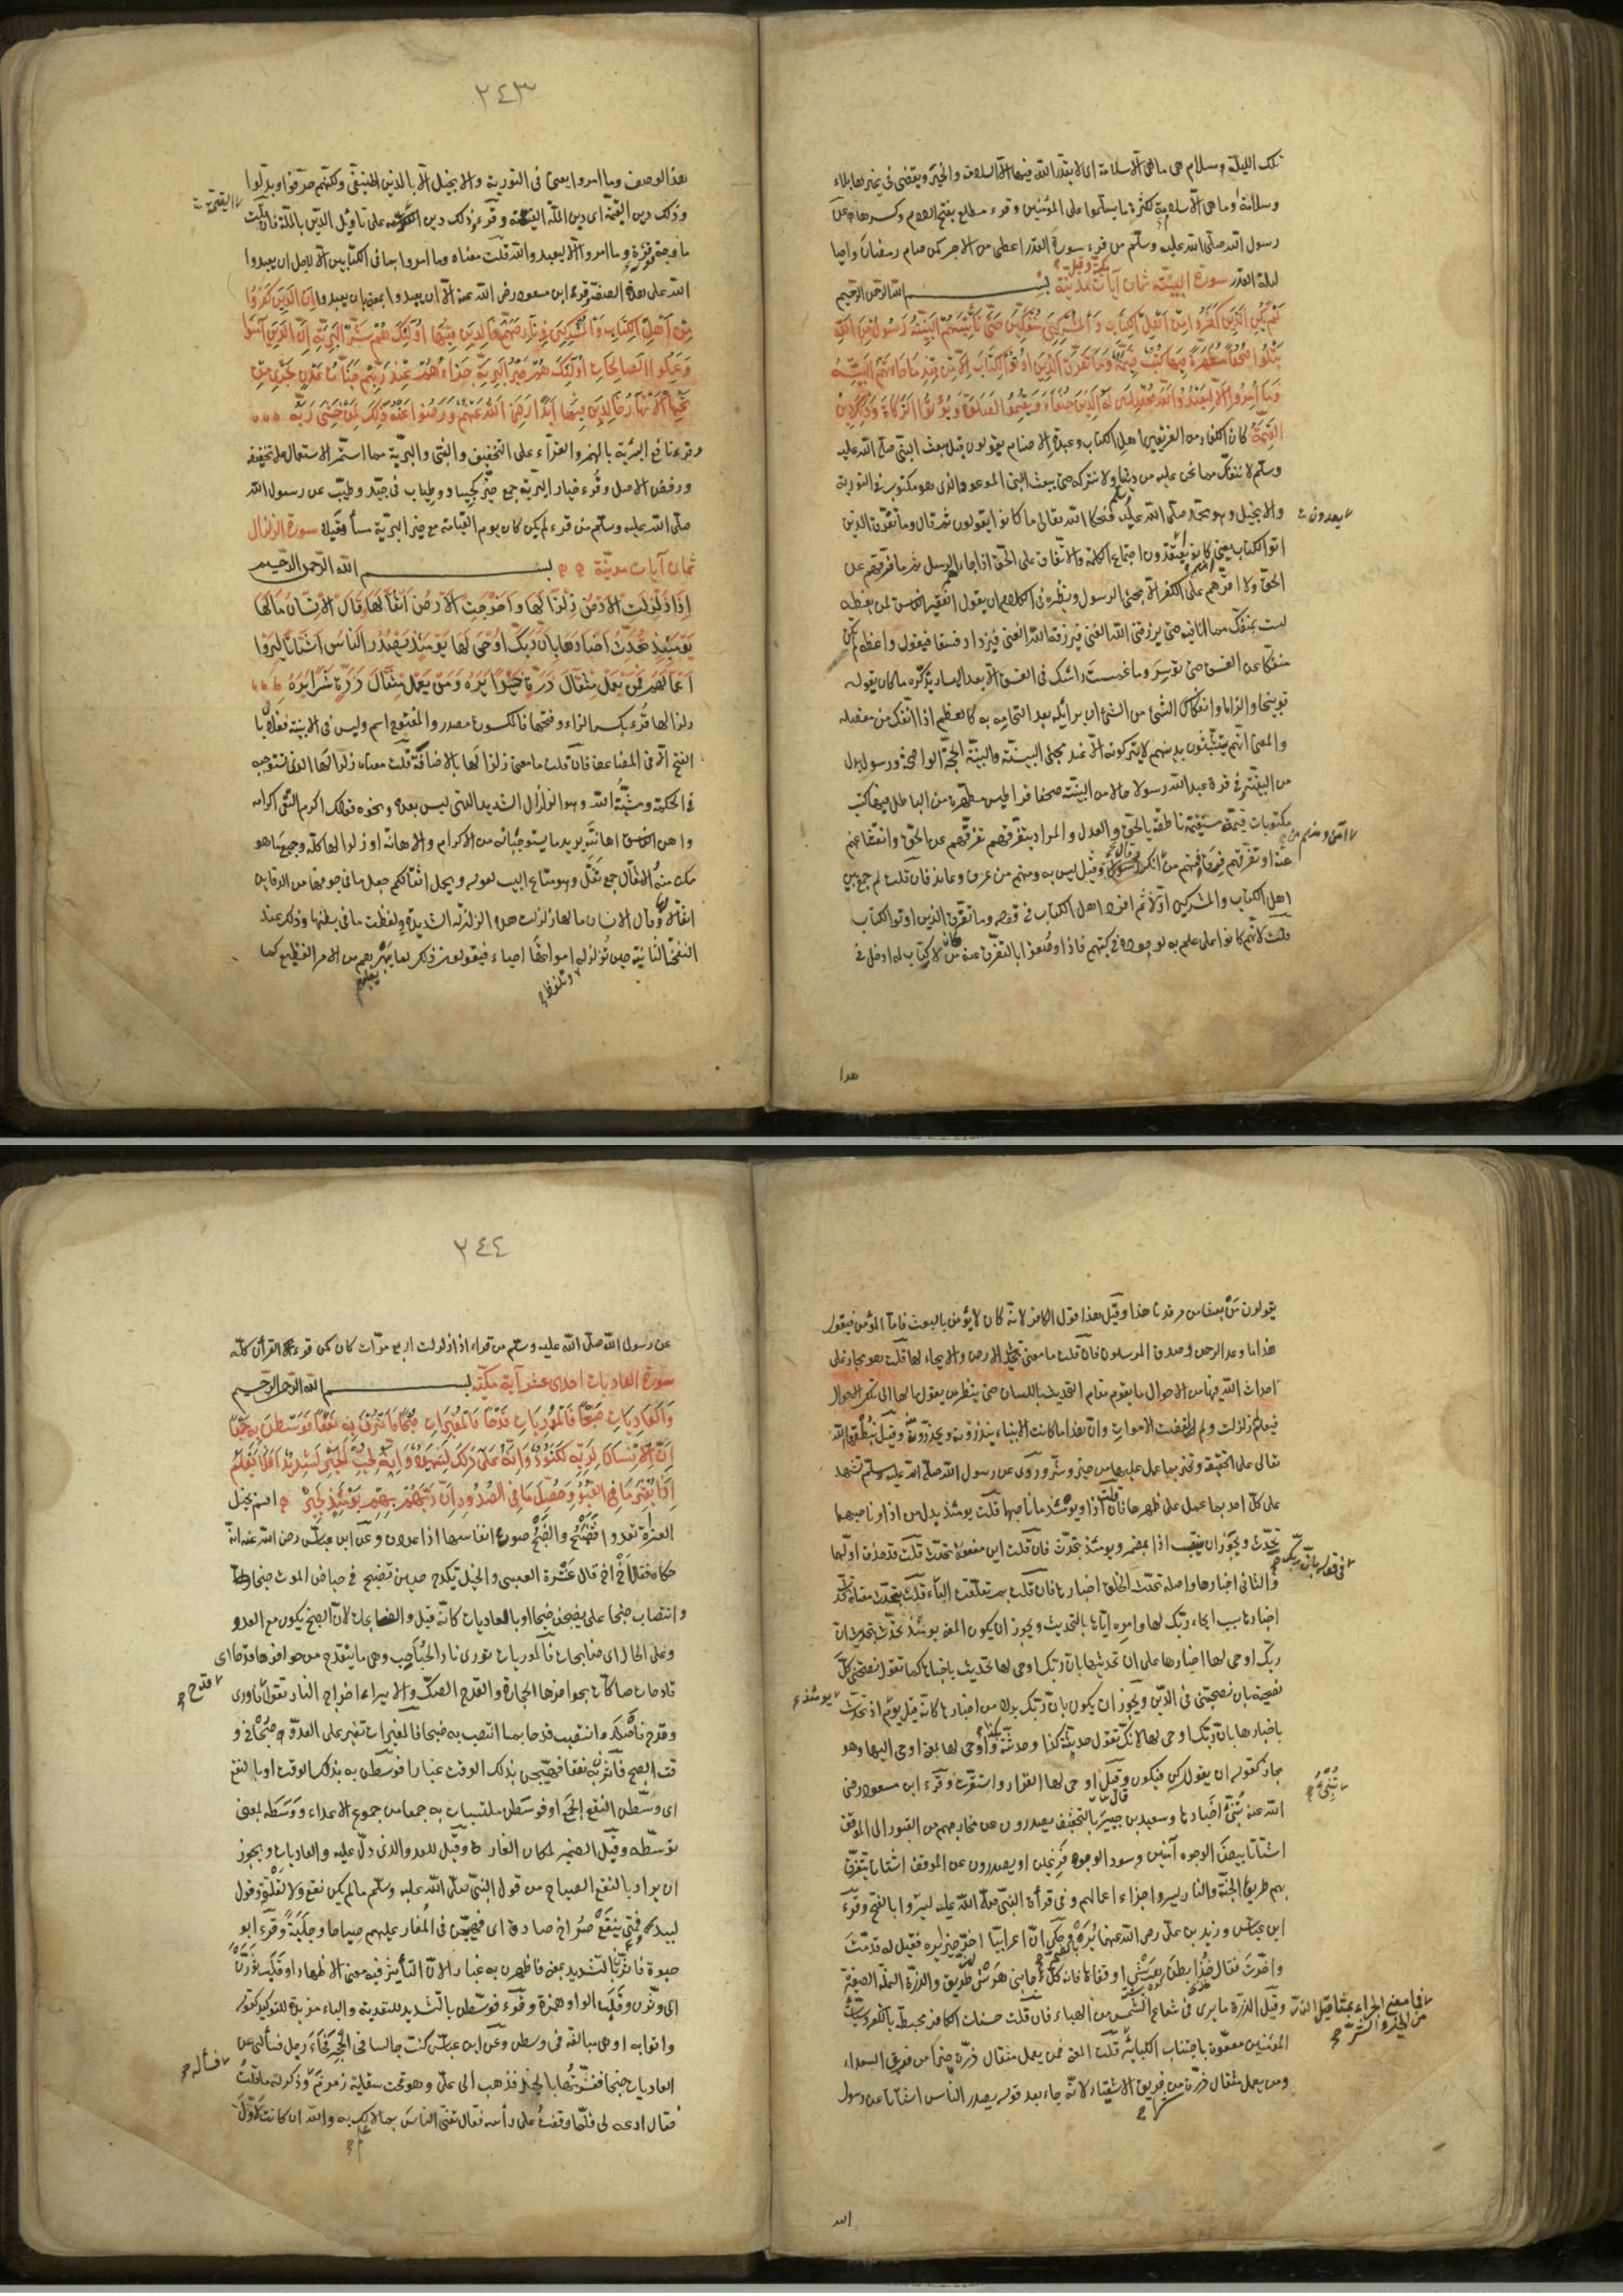 تلك الليلة وسلام هي ما هي الا سلامة اى لا يقدر الله فيها الا السلامة والخير ويقضى فى غيرها بلاء
وسلامة وما هى الا سلام لكثرة ما يسلمون على المؤمنين وقرء مطلع بفتح اللام وكسرها عن
رسول الله صلى الله عليه وسلم من قرء سورة القدر اعطى من الاجر كمن صام رمضان واحيا
ليلة القدر سورة البينة ثمان آيات مدنية بسم الله الرحمن الرحيم
مكية وقيل
لم يكن الذين كفروا من اهل الكتاب والمشركين منفكين حتى تأتيهم البينة رسول من الله
يتلوا صحفا مطهرة فيها كتب قيمة وما تفرق الذين اوتوا الكتاب الا من بعد ما جاءتهم البينة
وما امروا الا ليعبدوا الله مخلصين له الدين حنفاء ويقيموا الصلوة ويؤتوا الزكاة وذلك دين
القيمة كان الكفار من الفريقين اهل الكتاب وعبدة الاصنام يقولون قبل مبعث النبى صلى الله عليه
وسلم لا ننفك مما نحن عليه من ديننا ولا نتركه حتى يبعث النبى الموعود الذى هو مكتوب فى التورية
والانجيل وهو محمد صلى الله عليه وسلم فحكا الله تعالى ما كانوا يقولون ثم قال وما تفرق الذين
اتوا الكتاب يعنى كانوا اجتماع الكلمة والاتفاق على الحق اذا جاءهم الرسول ثم ما فرقهم عن
يعدون
الحق ولا اقرهم على الكفر الا مجئ الرسول ونظيره فى الكلام ان يقول الفقير الفاسق لمن يعظه
لست بمنفك مما انا فيه حتى يرزقنى الله الغنى فيرزقه الله الغنى فيزداد فسقا فيقول واعظه لم تكن
منفكا عن الفسق حتى توسر وما غمست رأسك فى الفسق الا بعد اليسار يذكره ما كان يقوله
توبيخا والزاما وانفكاك الشئ من الشئ ان يزايله بعد التحامه به كالعظم اذا انفك من مفصله
والمعنى انهم متشبثون بدينهم لا يتركونه الا عند مجئ البينة والبينة الحجة الواضحة ورسول بدل
من البينة وفى قرءة عبدالله رسولا حالا من البينة صحفا قراطيس مطهرة من الباطل فيها كتب
مكتوبات قيمة مستقيمة ناطقة بالحق والعدل والمراد بتفرقهم تفرقهم عن الحق وانقشاعهم
عنه او تفرقهم فرقا فمنهم من انكر وقال ليس به ومنهم من عرف وعاند فان قلت لم جمع بين
آمن ومنهم من
اهل الكتاب والمشركين اولا ثم افرد اهل الكتاب فى قوله وما تفرق الذين اوتوا الكتاب
قلت لانهم كانوا على علم به لوجوده فى كتبهم فاذا وصفوا بالتفرق عنه كان من لا كتاب له ادخل فى
هذا
٢٤٣
هذا الوصف وما امروا يعنى فى التورية والانجيل الا بالدين الحنيفى ولكنهم حرفوا وبدلوا
وذلك دين القيمة اى دين الملة القيمة وقرء وذلك دين القيمة على تأويل الدين بالملة فان قلت
ما وجه قوله وما امروا الا ليعبدوا الله قلت معناه وما امروا بما فى الكتابين الا لاجل ان يعبدوا
الله على هذه الصفة وقرء ابن مسعود رضى الله عنه الا ان يعبدوا بمعنى بان يعبدوا ان الذين كفروا
من اهل الكتاب والمشركين فى نار جهنم خالدين فيها اولئك هم شر البرية ان الذين آمنوا
وعملوا الصالحات اولئك هم خير البرية جزاءهم عند ربهم جنات عدن تجرى من
تحتها الانهار خالدين فيها ابدا رضى الله عنهم ورضوا عنه ذلك لمن خشى ربه
وقرء نافع البريئة بالهمز والقراء على التخفيف والنبى والبرية مما استمر الاستعمال على تخفيفه
ورفض الاصل وقرء خيار البرية جمع خير كجياد وطياب فى جيد وطيب عن رسول الله
صلى الله عليه وسلم من قرء لم يكن كان يوم القيامة مع خير البرية مسأ ومقيلا سورة الزلزال
ثمان آيات مدنية بسم الله الرحمن الرحيم
اذا زلزلت الارض زلزالها واخرجت الارض اثقالها وقال الانسان مالها
يومئذ تحدث اخبارها بان ربك اوحى لها يومئذ يصدر الناس اشتاتا ليروا
اعمالهم فمن يعمل مثقال ذرة خيرا يره ومن يعمل مثقال ذرة شرا يره
زلزالها قرء بكسر الزاء وفتحها فالمكسور مصدر والمفتوح اسم وليس فى الابنية فعلال
بالفتح الا فى المضاعف فان قلت ما معنى زلزالها بالاضافة قلت معناه زلزالها الذى تستوجبه
فى الحكمة ومشية الله وهو الزلزال الشديد الذى ليس بعده ونحوه قولك اكرم التقى اكرامه
واهن الفاسق اهانته يريد ما يستوجبانه من الاكرام والاهانة او زلزالها كله وجميع ما هو
ممكن منه الاثقال جمع ثقل وهو متاع البيت لقوله وتحمل اثقالكم جعل ما فى جوفها من الدفاين
اثقالا لها وقال الانسان مالها زلزلت هذه الزلزلة الشديدة ولفظت ما فى بطنها وذلك عند
النفخة الثانية حين تزلزل امواتها احياء فيقولون ذلك لما يبهرهم من الامر الفظيع كما
وتلفظ
يقولون من بعثنا من مرقدنا هذا وقيل هذا قول الكافر لانه كان لا يؤمن بالبعث فاما المؤمن فيقول
هذا ما وعد الرحمن وصدق المرسلون فان قلت ما معنى تحديث الارض والايحاء لها قلت هو مجاز على
احداث الله فيها من الاحوال ما يقوم مقام التحديث باللسان حتى ينظر من يقول مالها الى تلك الاحوال
فيعلم لم زلزلت ولم لفظت الاموات وان هذا ما كانت الانبياء ينذرونه ويحذرونه وقيل ينطقها الله
تعالى على الحقيقة وتخبر بما عمل عليها من خير وشر وروى عن رسول الله صلى الله عليه وسلم تشهد
على كل احد بما عمل على ظهرها فان قلت اذا ويومئذ ما ناصبها قلت يومئذ بدل من اذا وناصبها
تحدث ويجوز ان ينتصب اذا بمضمر ويومئذ بتحدث فان قلت اين مفعولا تحدث قلت قد حذف اولهما
والثانى اخبارها واصله تحدث الخلق اخبارها فان قلت بم تعلقت الباء قلت بتحدث معناه تحدث
فى قوله بان ربك
اخبارها بسبب ايحاء ربك لها وامره اياها بالتحديث ويجوز ان يكون المعنى يومئذ تحدث بتحديث ان
ربك اوحى لها اخبارها على ان تحديثها بان ربك اوحى لها تحديث باخبارها كما تقول نصحتنى كل
نصيحة بان نصحتنى فى الدين ويجوز ان يكون بان ربك بدلا من اخبارها كانه قيل يومئذ تحدث
باخبارها بان ربك اوحى لها لانك تقول حدثته كذا وحدثته بكذا واوحى لها بمعنى اوحى اليها وهو
مجاز كقوله ان يقول له كن فيكون وقيل اوحى لها القرار واستقرت وقرء ابن مسعود رضى
الله عنه تنبئ اخبارها وسعيد بن جبير بالتخفيف يصدرون عن مخارجهم من القبور الى الموقف
تنبئ
اشتاتا بيض الوجوه آمنين وسود الوجوه فزعين او يصدرون عن الموقف اشتاتا يتفرق
بهم طريق الجنة والنار ليروا جزاء اعمالهم وفى قرأة النبى صلى الله عليه ليروا بالفتح وقرء
ابن عباس وزيد بن على رضى الله عنهما يره بالضم وحكى ان اعرابيا اخر خيرا يره فقيل له قدمت
واخرت فقال خذا بطن هرشى او قفاها فانه كلا جانبى هرشى لهن طريق والذرة النملة الصغيرة
وقيل الذرة ما يرى فى شعاع الشمس من الهباء فان قلت حسنات الكافر محبطة بالكفر وسيئات
فما معنى الجزاء بمثاقيل الذر
من الخير والشر
المؤمنين معفوة باجتناب الكبائر قلت المعنى فمن يعمل مثقال ذرة خيرا من فريق السعداء
ومن يعمل مثقال ذرة شرا من فريق الاشقياء لانه جاء بعد قوله يصدر الناس اشتاتا عن رسول
الله
٢٤٤
عن رسول الله صلى الله عليه وسلم من قراء اذا زلزلت اربع مرات كان كمن قرء القرأن كله
سورة العاديات احدى عشر آية مكية بسم الله الرحمن الرحيم
والعاديات ضبحا فالموريات قدحا فالمغيرات صبحا فاثرن به نقعا فوسطن به جمعا
ان الانسان لربه لكنود وانه على ذلك لشهيد وانه لحب الخير لشديد افلا يعلم
اذا بعثر ما فى القبور وحصل ما فى الصدور ان ربهم بهم يومئذ لخبير اقسم بخيل
الغزاة تعدوا فتضبح والضبح صوت انفاسها اذا عدون وعن ابن عباس رضى الله عنه انه
حكاه فقال اح اح قال عنترة العبسى والخيل تكدح حين تضبح فى حياض الموت ضبحا
وانتصاب ضبحا على يضبحن ضبحا او بالعاديات كانه قيل والضابحات لان الضبح يكون مع العدو
وعلى الحال اى ضابحات فالموريات تورى نار الحباحب وهى ما ينقدح من حوافرها قدحا اى
قادحات صاكات بحوافرها الحجارة والقدح الصك والايراء اخراج النار تقول قدح فاورى
وقدح فاصلد وانتصب قدحا بما انتصب به ضبحا فالمغيرات تغير على العدو صبحا فى و
قت الصبح فاثرن به نقعا فهيجن بذلك الوقت غبارا فوسطن به بذلك الوقت او بالنقع
اى وسطن النقع الجمع او فوسطن ملتبسات به جمعا من جموع الاعداء ووسطه بمعنى
توسطه وقيل الضمير لمكان الغارة وقيل للعدو الذى دل عليه والعاديات ويجوز
ان يراد بالنقع الصياح من قول النبى صلى الله عليه وسلم ما لم يكن نقع ولا لقلقة وقول
لبيد فمتى ينقع صراخ صادق اى فهيجن فى المغار عليهم صياحا وجلبة وقرء ابو
حيوة فاثرن بالتشديد بمعنى فاظهرن به غبارا لان التأثير فيه معنى الاظهار او قلب ثورن
الى وثرن وقلب الواو همزة وقرء فوسطن بالتشديد للتعدية والباء مزيدة للتوكيد كقوله
واتوا به او هى مبالغة فى وسطن وعن ابن عباس كنت جالسا فى الحجر فجاء رجل فسألنى عن
العاديات ضبحا ففسرتها بالخيل فذهب الى على وهو تحت سقاية زمزم وذكر له ما قلت
فسأله
فقال ادعه لى فلما وقفت على رأسه فقال تفتى الناس بما لا علم لك به والله ان كانت لاول